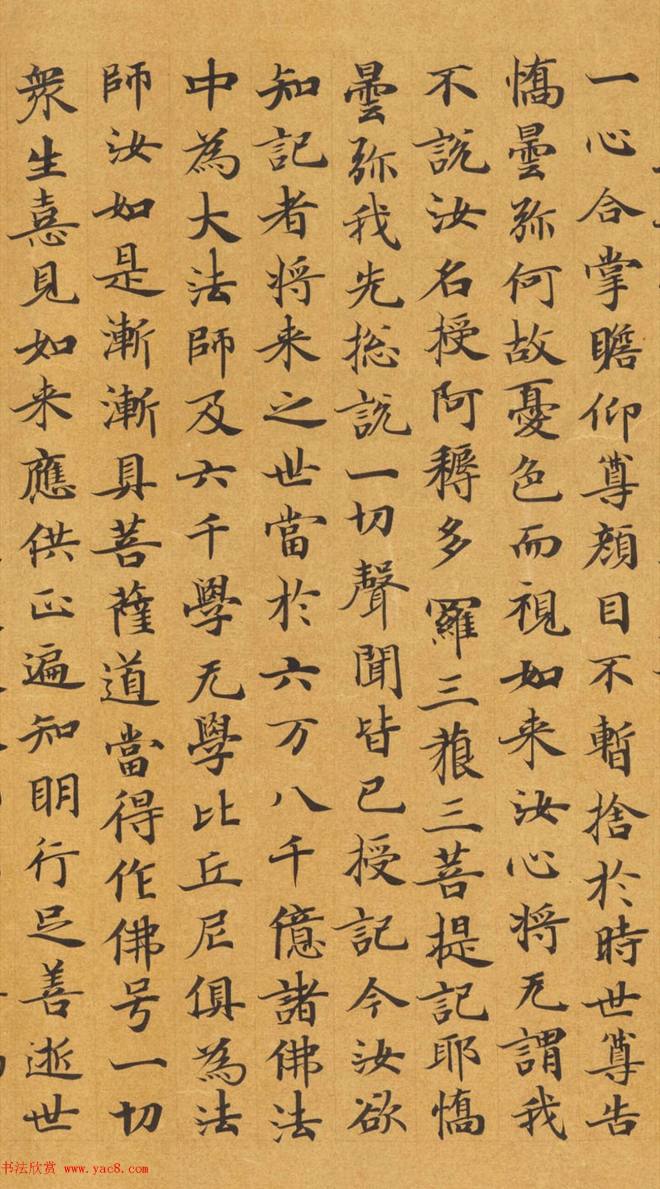 一心合掌瞻仰尊顔目不暫捨於時世尊告
憍曇弥何故憂色而視如来汝心将无謂我
不說汝名授阿耨多羅三藐三菩提記耶憍
曇弥我先捴說一切聲聞皆已授記今汝欲
知記者将来之世當於六万八千億諸佛法
中為大法師及六千學无學比丘尼俱為法
師汝如是漸漸具菩薩道當得作佛号一切
衆生憙見如来應供正遍知明行足善逝世
书法欣赏 www.yac8.com